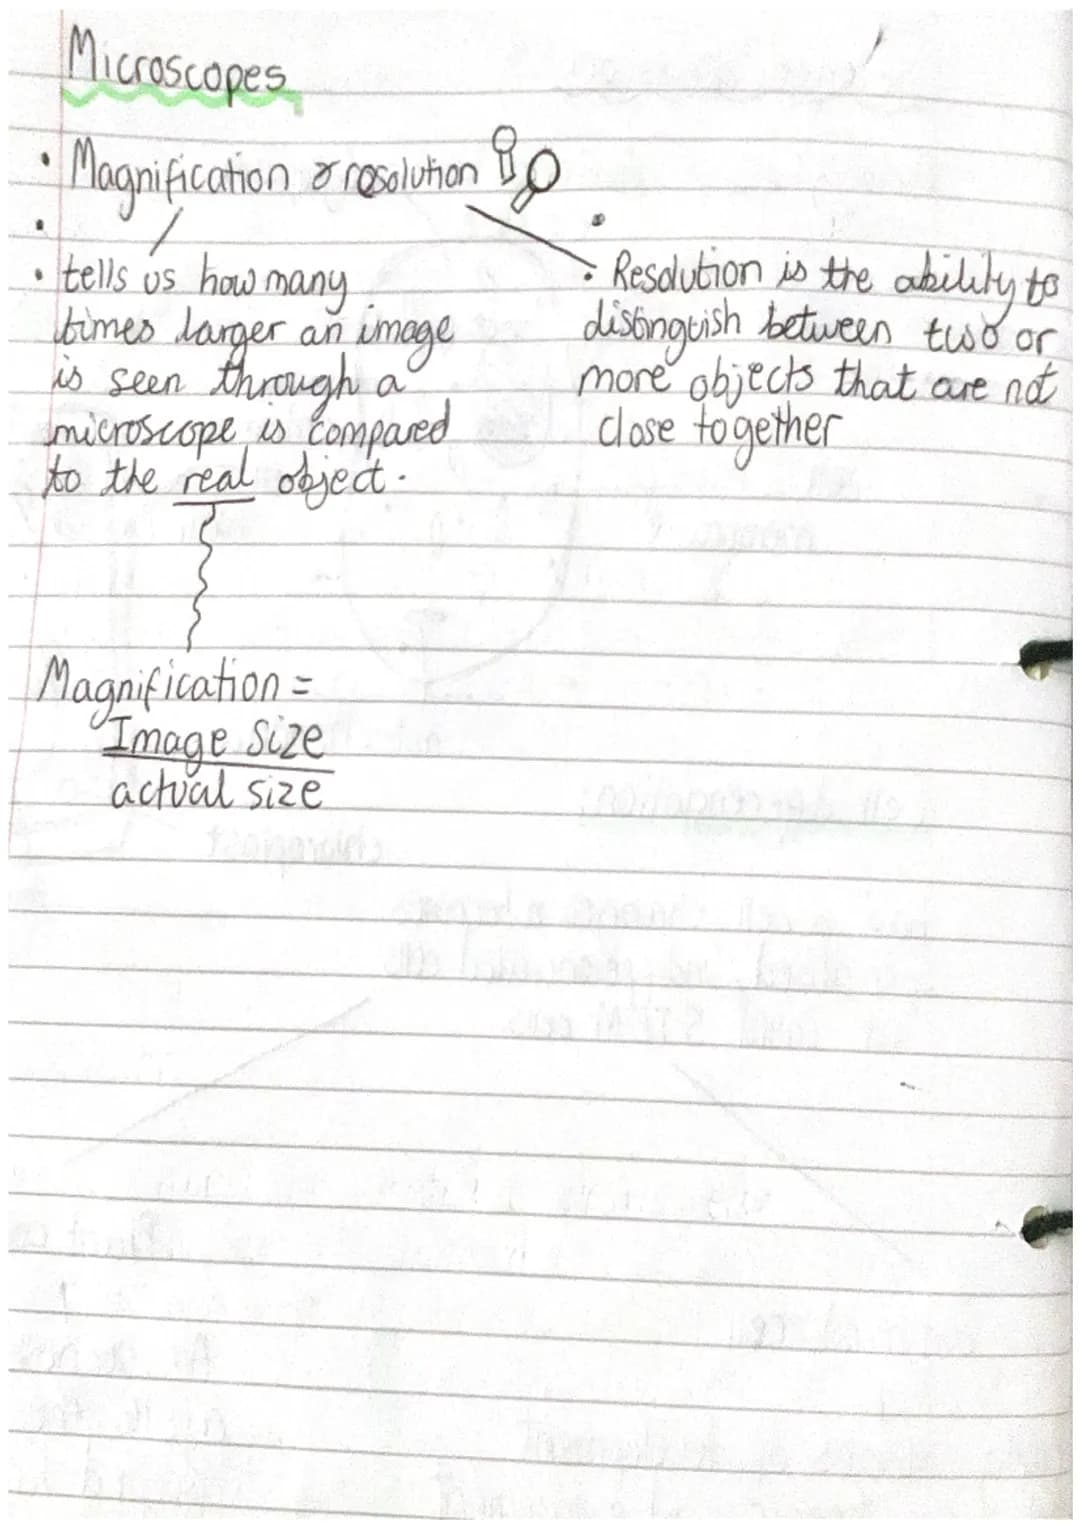 Microscopes
• Magnification & resolution
• tells us how many
times larger an image
is seen through a
microscope is compared
to the real object.
Magnification =
Image Size
actual size
• Resolution is the ability to
distinguish between two or
more objects that are not
close together